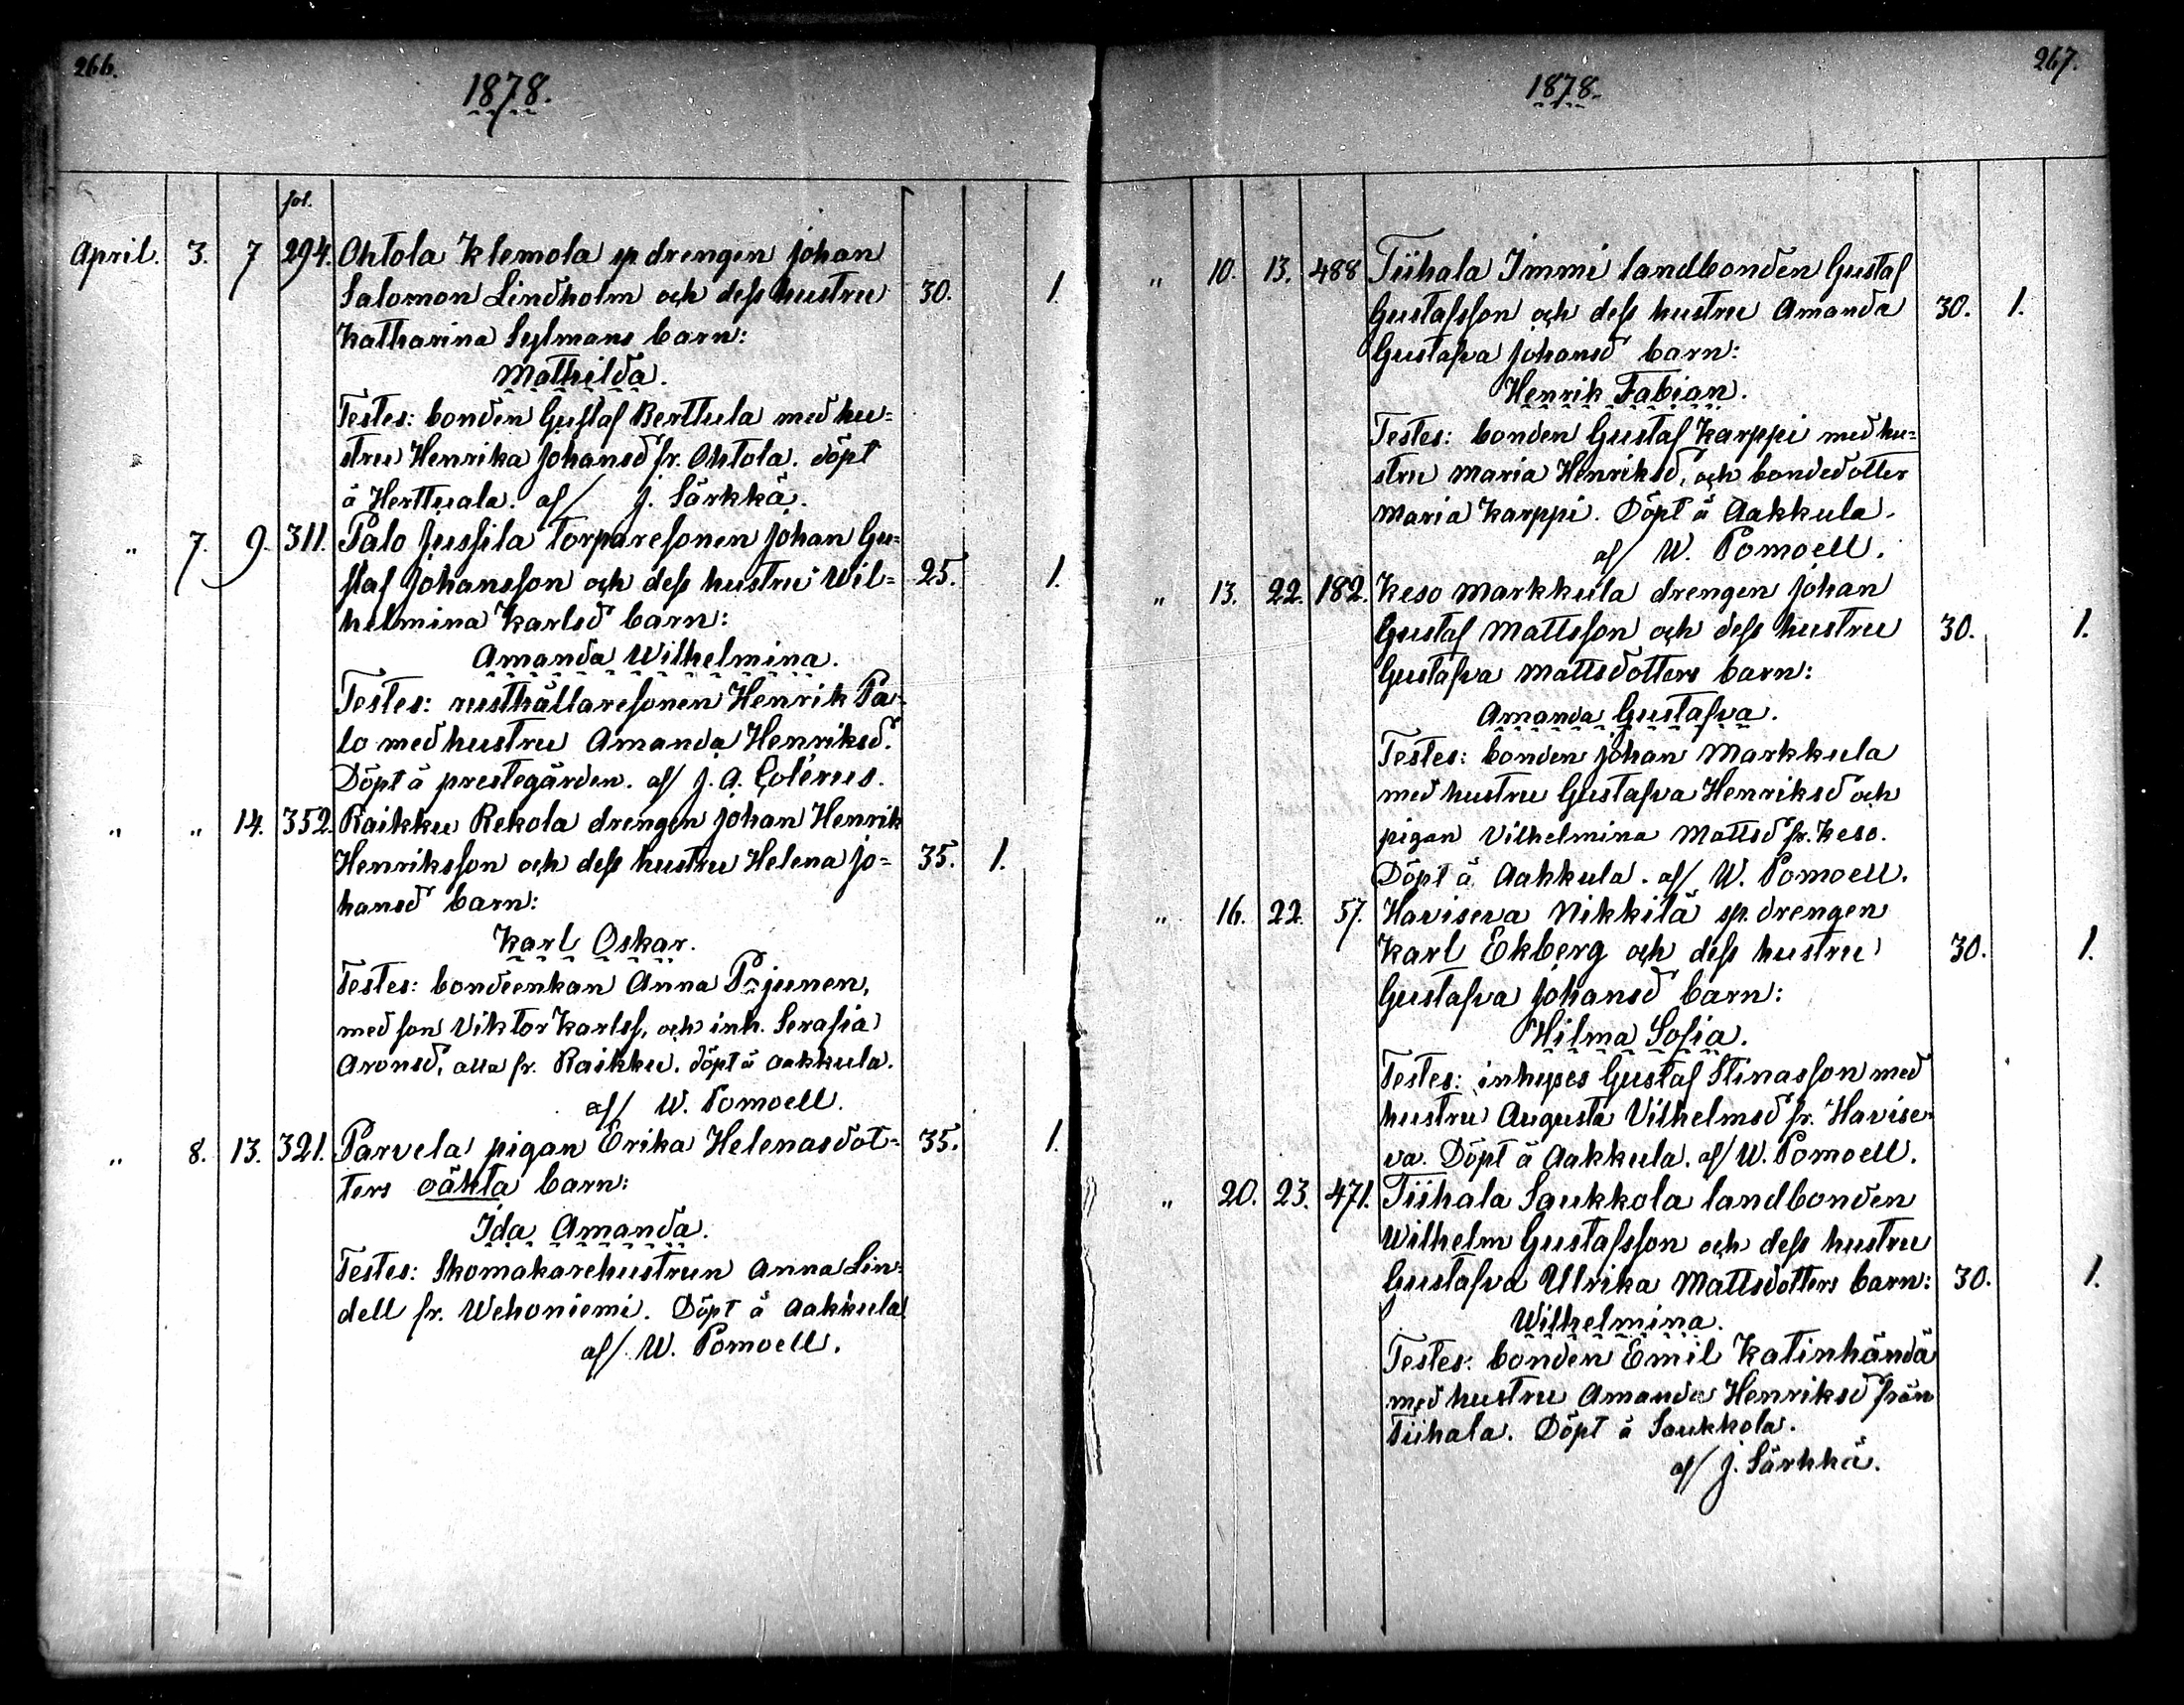 266.
1878.
fol.
April. 3. 7 294. Ohtola Klemola sp. drengen Johan
Salomon Lindholm och dess hustru 30. 1.
Katharina Sylmans barn:
Mathilda.
Testes: bonden Gustaf Berttula med hu=
stru Henrika Johansd fr. Ohtola. döpt
å Herttuala. af/ J. Särkkä.
" 7. 9. 311. Palo Jussila torparesonen Johan Gu=
staf Johansson och dess hustru Wil= 25. 1.
helmina Karlsd barn:
Amanda Wilhelmina.
Testes: rusthållaresonen Henrik Pa=
lo med hustru Amanda Henriksd.
Döpt å prestegården. af/ J. A. Colérus.
" " 14. 352. Raikku Rekola drengen Johan Henrik
Henriksson och dess hustru Helena Jo= 35. 1.
hansd barn:
Karl Oskar.
Testes: bondeenkan Anna Pojunen,
med son Viktor Karlss, och inh. Serafia
Aronsd, alla fr. Raikku. döpt å Aakkula.
af/ W. Pomoell.
" 8. 13. 321. Parvela pigan Erika Helenasdot= 35. 1.
ters oäkta barn:
Ida Amanda.
Testes: Skomakarehustrun Anna Lin=
dell fr. Wehoniemi. Döpt å Aakkula
af/ W. Pomoell.
267.
1878.
" 10. 13. 488 Tiihala Immi landbonden Gustaf
Gustafsson och dess hustru Amanda 30. 1.
Gustafva Johansd barn:
Henrik Fabian.
Testes: bonden Gustaf Karppi med hu=
stru Maria Henriksd, och bondedotter
Maria Karppi. Döpt å Aakkula.
af/ W. Pomoell.
" 13. 22. 182. Keso Markkula drengen Johan
Gustaf Mattsson och dess hustru 30. 1.
Gustafva Mattsdotters barn:
Amanda Gustafva.
Testes: bonden Johan Markkula
med hustru Gustafva Henriksd och
pigan Vilhelmina Mattsd fr. Keso.
Döpt å Aakkula. af/ W. Pomoell.
" 16. 22. 57. Haviseva Nikkilä sp. drengen
Karl Ekberg och dess hustru 30. 1.
Gustafva Johansd barn:
Hilma Sofia.
Testes: inhyses Gustaf Stinasson med
hustru Augusta Vilhelmsd fr. Havise=
va. Döpt å Aakkula. af/ W. Pomoell.
" 20. 23. 471. Tiihala Saukkola landbonden
Wilhelm Gustafsson och dess hustru
Gustafva Ullrika Mattsdotters barn: 30. 1.
Wilhelmina.
Testes: bonden Emil Katinhändä
med hustru Amanda Henriksd från
Tiihala. Döpt å Saukkola.
af/ J. Särkkä.